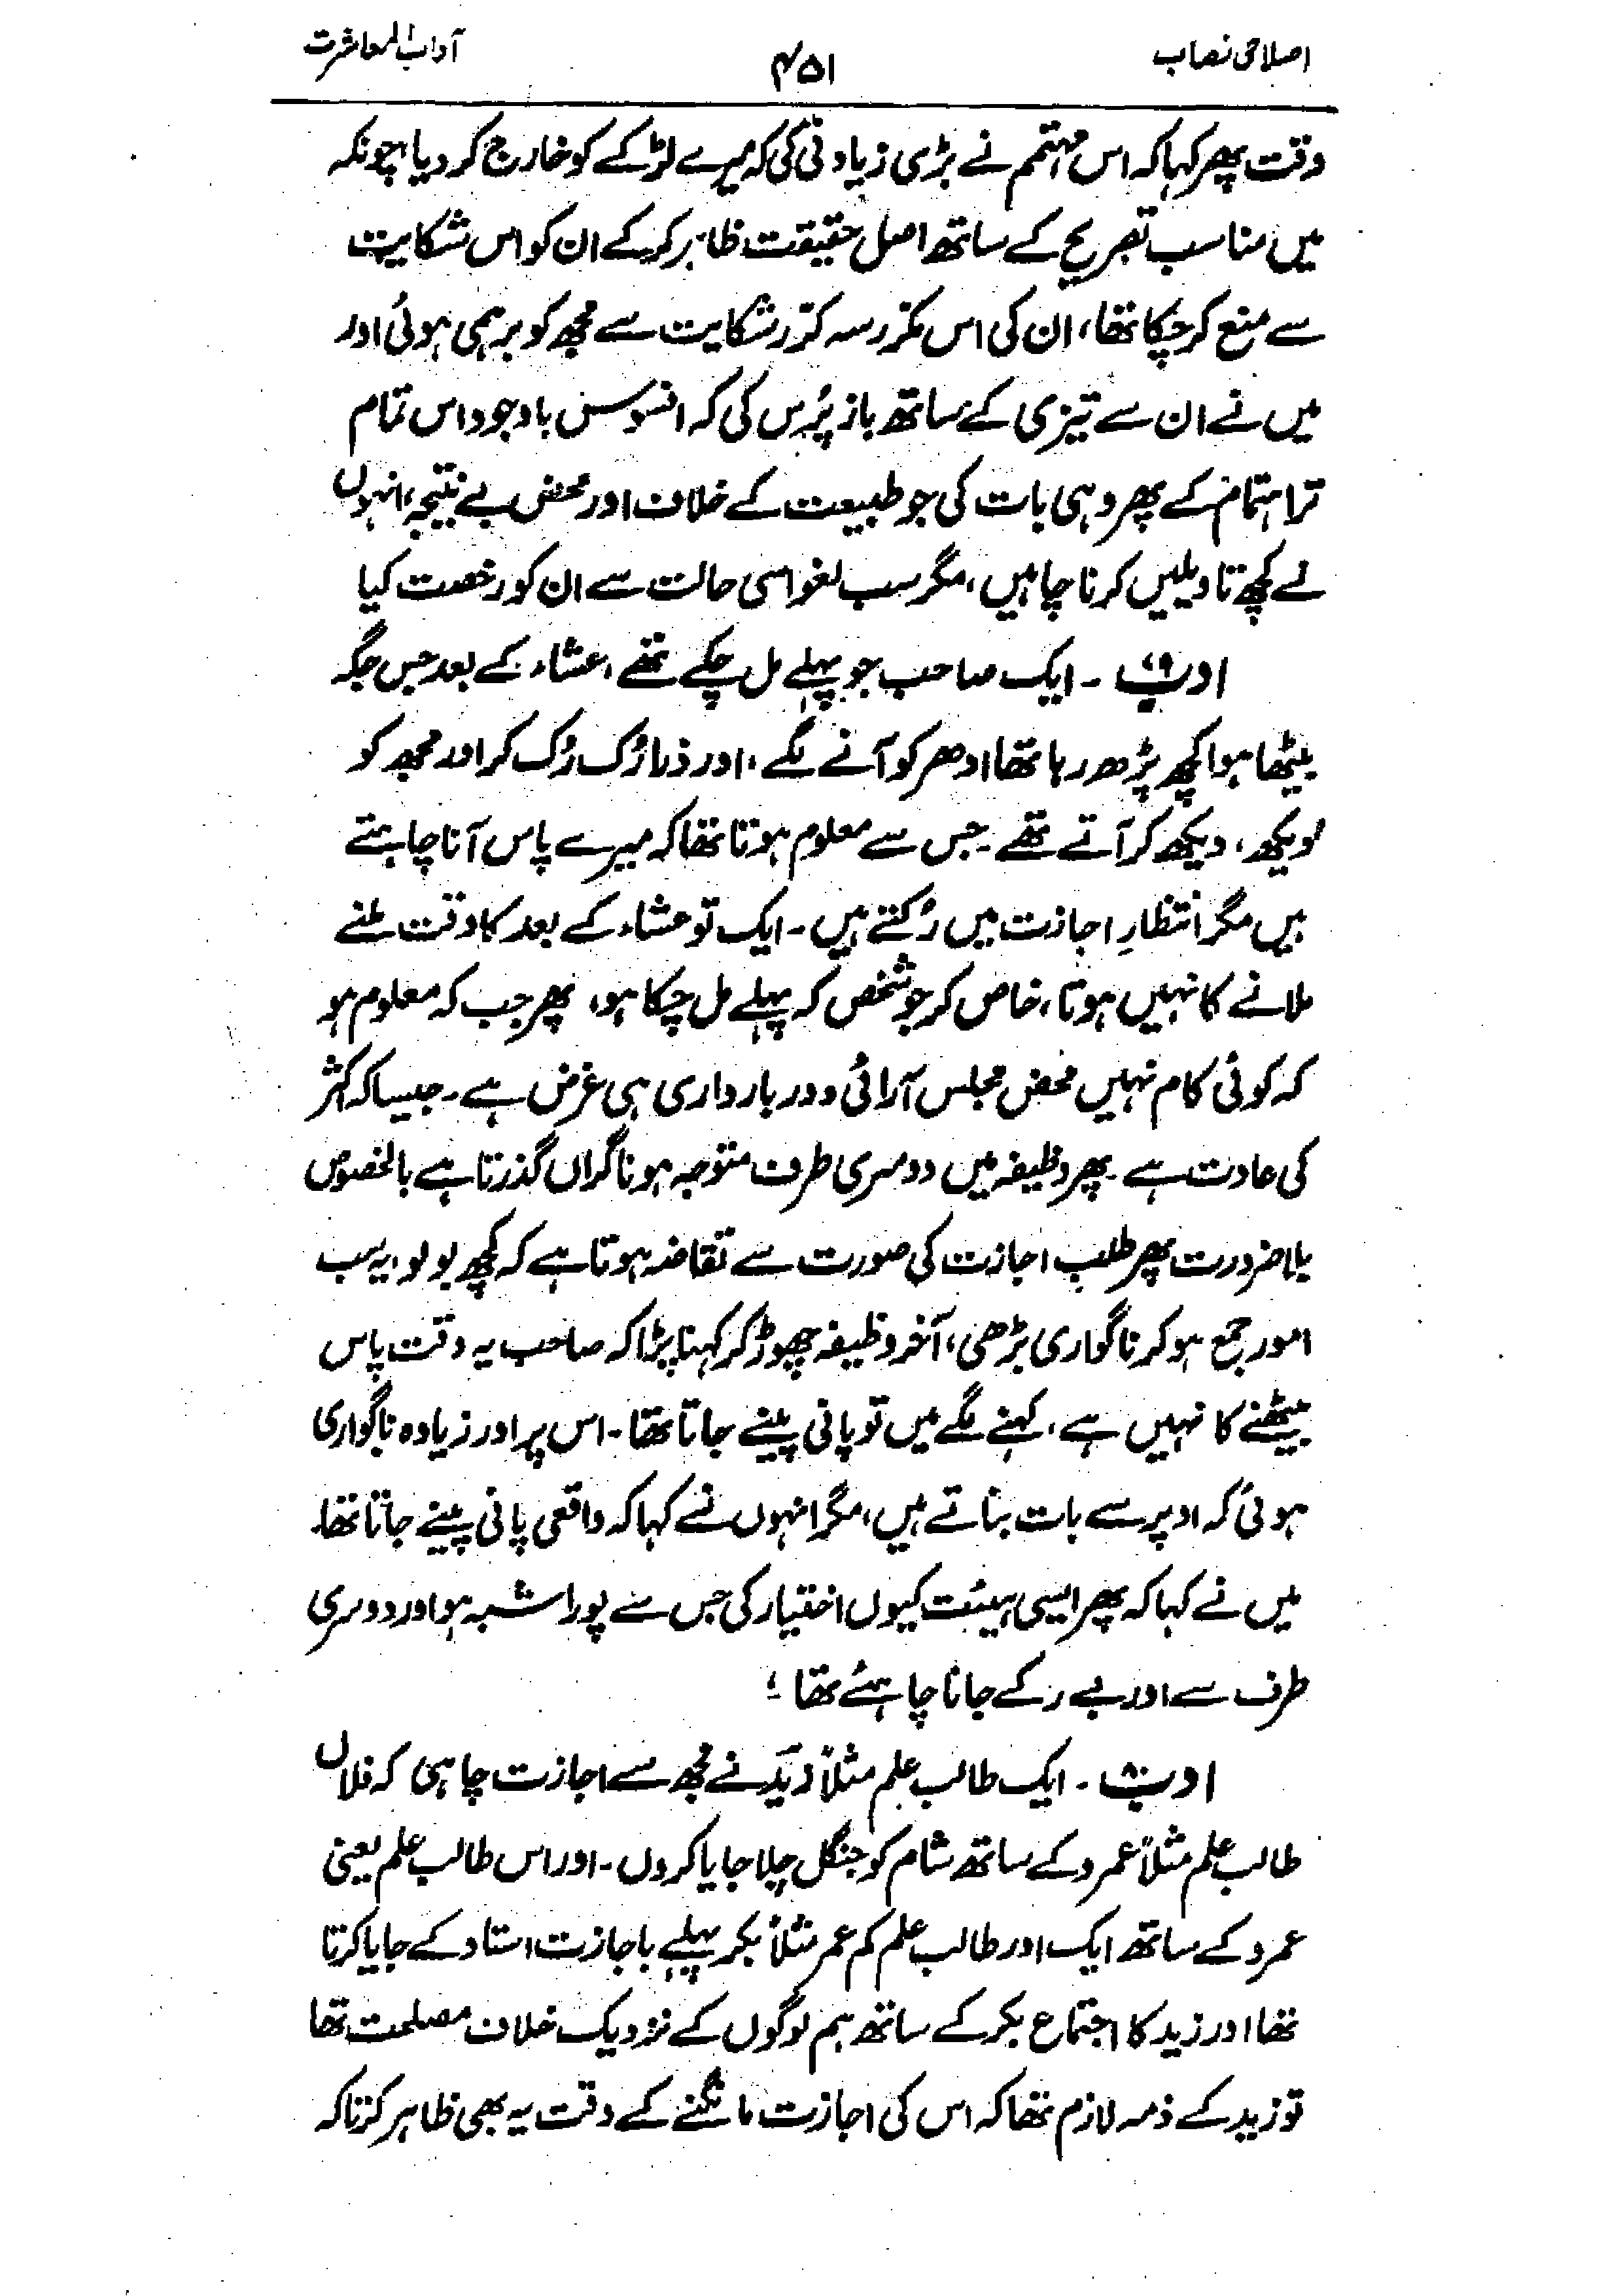 اصلاحی نصاب
۴۵۱
آداب المعاشرت
وقت پھر کہا کہ اس مہتمم نے بڑی زیادتی کی کہ میرے لڑکے کو خارج کر دیا، چونکہ
میں مناسب تصریح کے ساتھ اصل حقیقت ظاہر کر کے ان کو اس شکایت
سے منع کر چکا تھا، ان کی اس مکرر سہ کرر شکایت سے مجھ کو برہمی ہوئی اور
میں نے ان سے تیزی کے ساتھ باز پُرس کی کہ افسوس باوجود اس تمام
تر اہتمام کے پھر وہی بات کی جو طبیعت کے خلاف اور محض بے نتیجہ، انہوں
نے کچھ تاویلیں کرنا چاہیں، مگر سب لغو اسی حالت سے ان کو رخصت کیا
ادب ۷۹ ۔ ایک صاحب جو پہلے مل چکے تھے، عشاء کے بعد جس جگہ
بیٹھا ہوا کچھ پڑھ رہا تھا ادھر کو آنے لگے، اور ذرا رُک رُک کر اور مجھ کو
دیکھ، دیکھ کر آتے تھے ۔ جس سے معلوم ہوتا تھا کہ میرے پاس آنا چاہتے
ہیں مگر انتظارِ اجازت میں رُکتے ہیں ۔ ایک تو عشاء کے بعد کا وقت ملنے
ملانے کا نہیں ہوتا، خاص کر جو شخص کہ پہلے مل چکا ہو، پھر جب کہ معلوم ہو
کہ کوئی کام نہیں محض مجلس آرائی و دربار داری ہی غرض ہے ۔ جیسا کہ اکثر
کی عادت ہے ۔ پھر وظیفہ میں دوسری طرف متوجہ ہونا گراں گذرتا ہے بالخصوص
بلا ضرورت پھر طلب اجازت کی صورت سے تقاضہ ہوتا ہے کہ کچھ بولو، یہ سب
امور جمع ہو کر ناگواری بڑھی، آخر وظیفہ چھوڑ کر کہنا پڑا کہ صاحب یہ وقت پاس
بیٹھنے کا نہیں ہے، کہنے لگے میں تو پانی پینے جاتا تھا ۔ اس پر اور زیادہ ناگواری
ہوئی کہ اوپر سے بات بناتے ہیں، مگر انہوں نے کہا کہ واقعی پانی پینے جاتا تھا
میں نے کہا کہ پھر ایسی ہیئت کیوں اختیار کی جس سے پورا شبہ ہو اور دوسری
طرف سے اور بے رکے جانا چاہئے تھا ؛
ادب ۸۰ ۔ ایک طالب علم مثلاً زید نے مجھ سے اجازت چاہی کہ فلاں
طالب علم مثلاً عمرو کے ساتھ شام کو جنگل چلا جایا کروں ۔ اور اس طالب علم یعنی
عمرو کے ساتھ ایک اور طالب علم کم عمر مثلاً بکر پہلے با جازت استاد کے جایا کرتا
تھا اور زید کا اجتماع بکر کے ساتھ ہم لوگوں کے نزدیک خلاف مصلحت تھا
تو زید کے ذمہ لازم تھا کہ اس کی اجازت مانگنے کے وقت یہ بھی ظاہر کرتا کہ